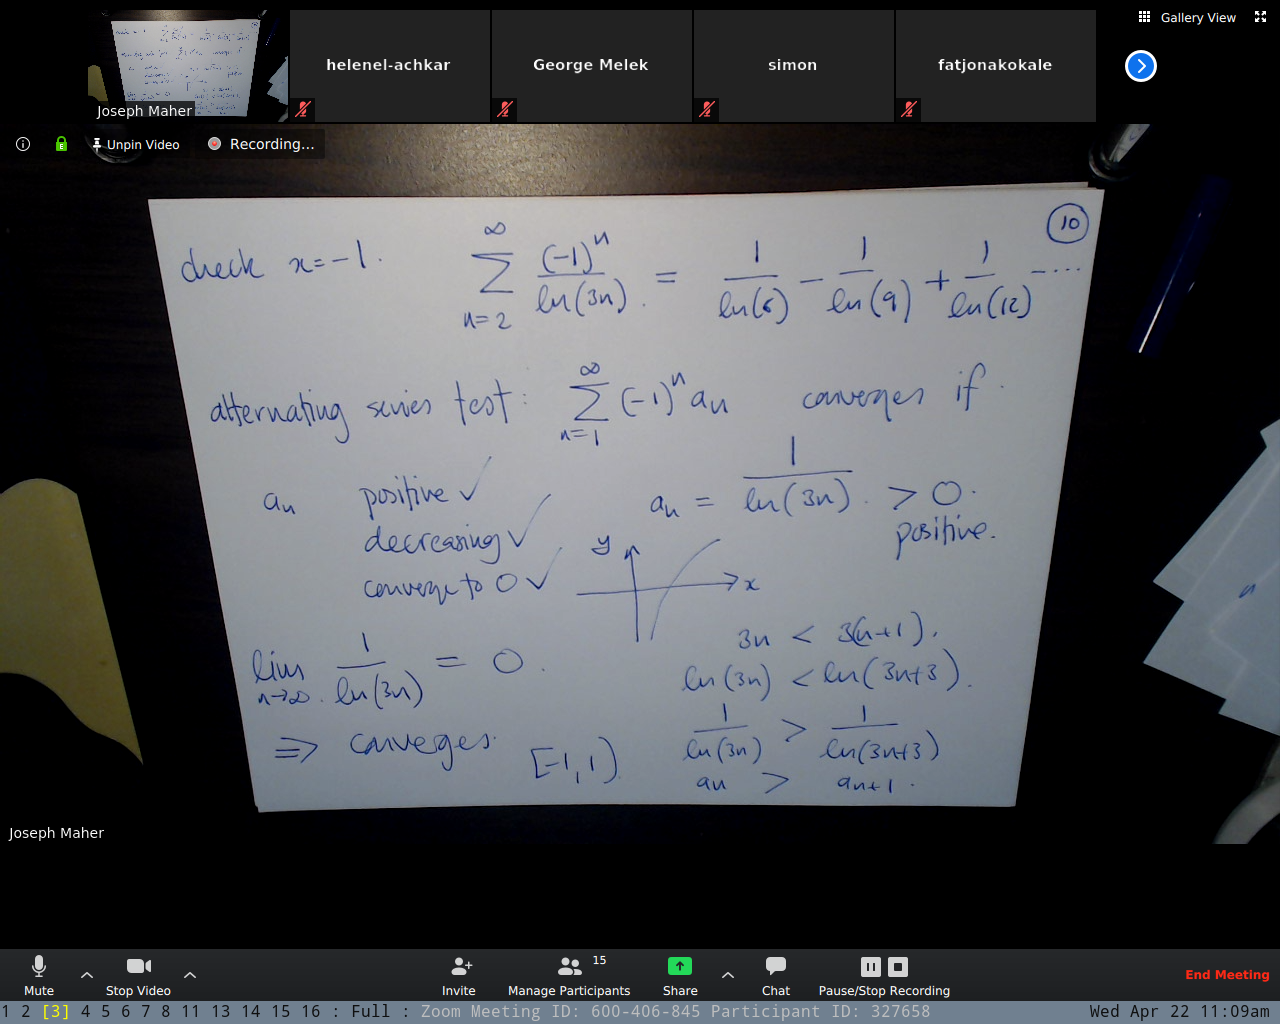 Gallery View
helenel-achkar
George Melek
simon
fatjonakokale
Joseph Maher
Unpin Video
Recording...
10
check x=-1. ∑_{n=2}^{∞} (-1)^n / ln(3n) . = 1/ln(6) - 1/ln(9) + 1/ln(12) ....
alternating series test: ∑_{n=1}^{∞} (-1)^n a_n converges if
a_n positive ✓ a_n = 1/ln(3n) . > 0.
positive.
decreasing ✓
converge to 0 ✓
y
x
lim_{n→∞} 1/ln(3n) = 0 .
3n < 3(n+1).
ln(3n) < ln(3n+3).
1/ln(3n) > 1/ln(3n+3)
a_n > a_{n+1} .
⇒ converges. [-1,1)
Joseph Maher
Mute
Stop Video
Invite
15
Manage Participants
Share
Chat
Pause/Stop Recording
End Meeting
1 2 [3] 4 5 6 7 8 11 13 14 15 16 : Full : Zoom Meeting ID: 600-406-845 Participant ID: 327658
Wed Apr 22 11:09am